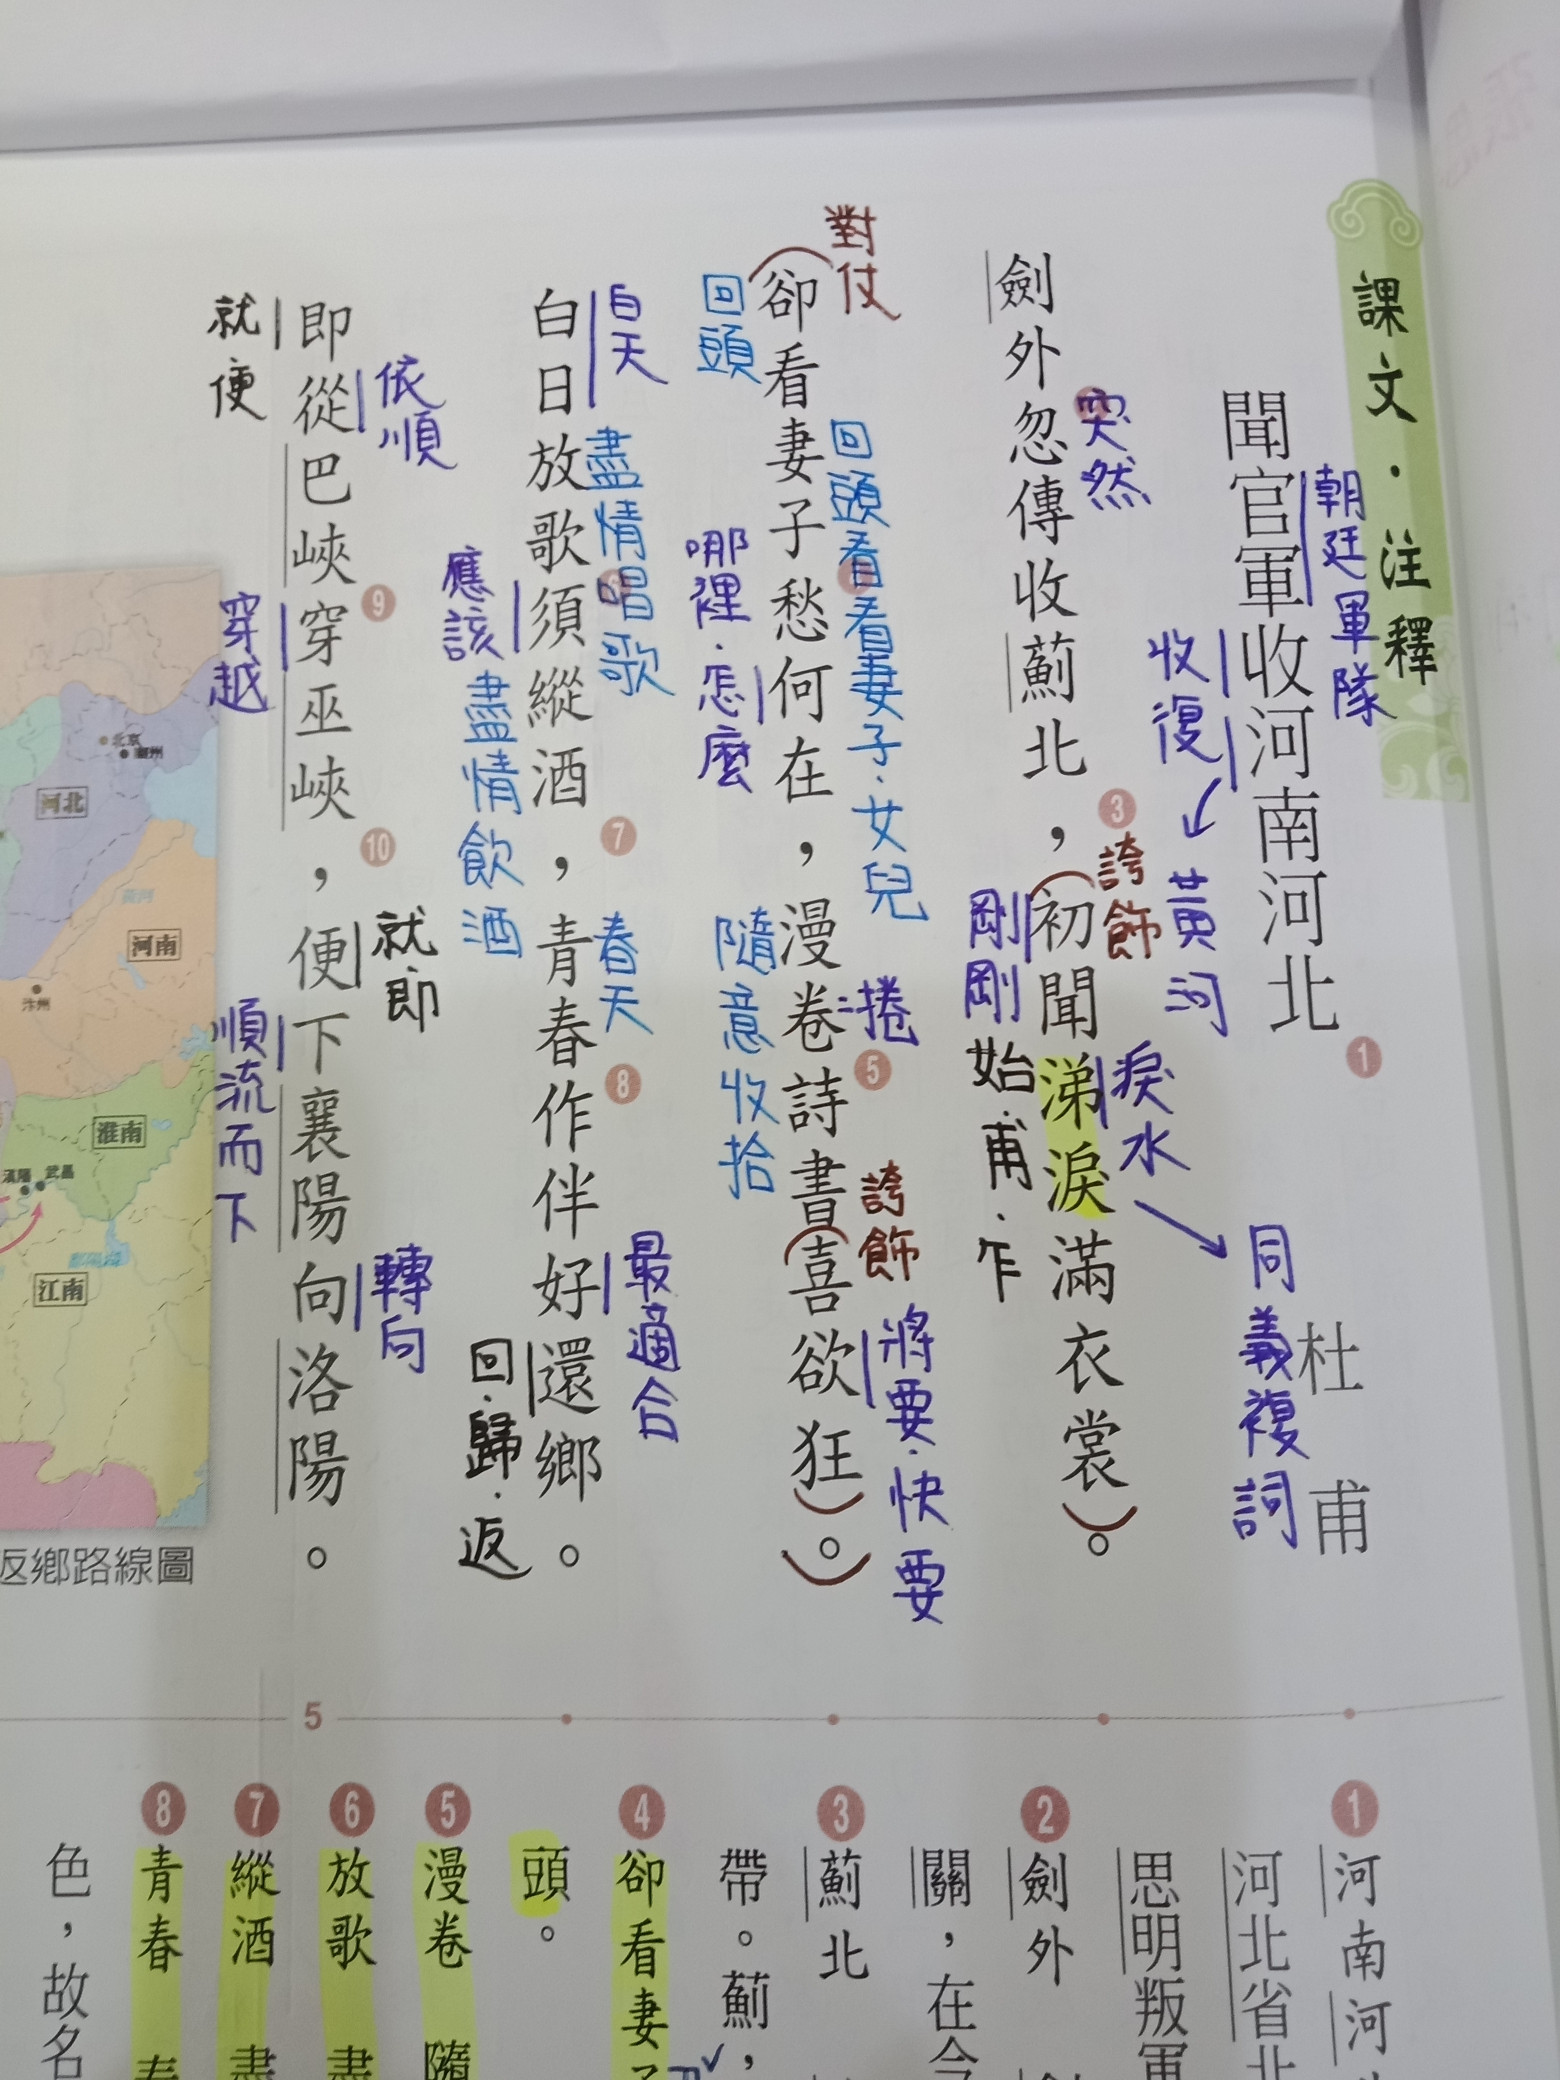 課文．注釋
聞官軍收河南河北
朝廷軍隊
收復
黃河
杜甫
劍外忽傳收薊北，初聞涕淚滿衣裳。
突然
誇飾
剛剛
始．甫．乍
淚水
同義複詞
卻看妻子愁何在，漫卷詩書喜欲狂。
對仗
回頭
回頭看看妻子．女兒
哪裡．怎麼
捲
隨意收拾
誇飾
將要．快要
白日放歌須縱酒，青春作伴好還鄉。
白天
盡情唱歌
應該
盡情飲酒
春天
最適合
回．歸．返
即從巴峽穿巫峽，便下襄陽向洛陽。
就便
依順
穿越
就即
順流而下
轉向
1
3
5
7
8
9
10
北京
河北
河南
汴州
淮南
武昌
江南
返鄉路線圖
5
1 河南河
河北省北
思明叛軍
2 劍外
關，在今
3 薊北
帶。薊，
4 卻看妻
頭。
5 漫卷 隨
6 放歌 盡
7 縱酒 盡
8 青春 春
色，故名